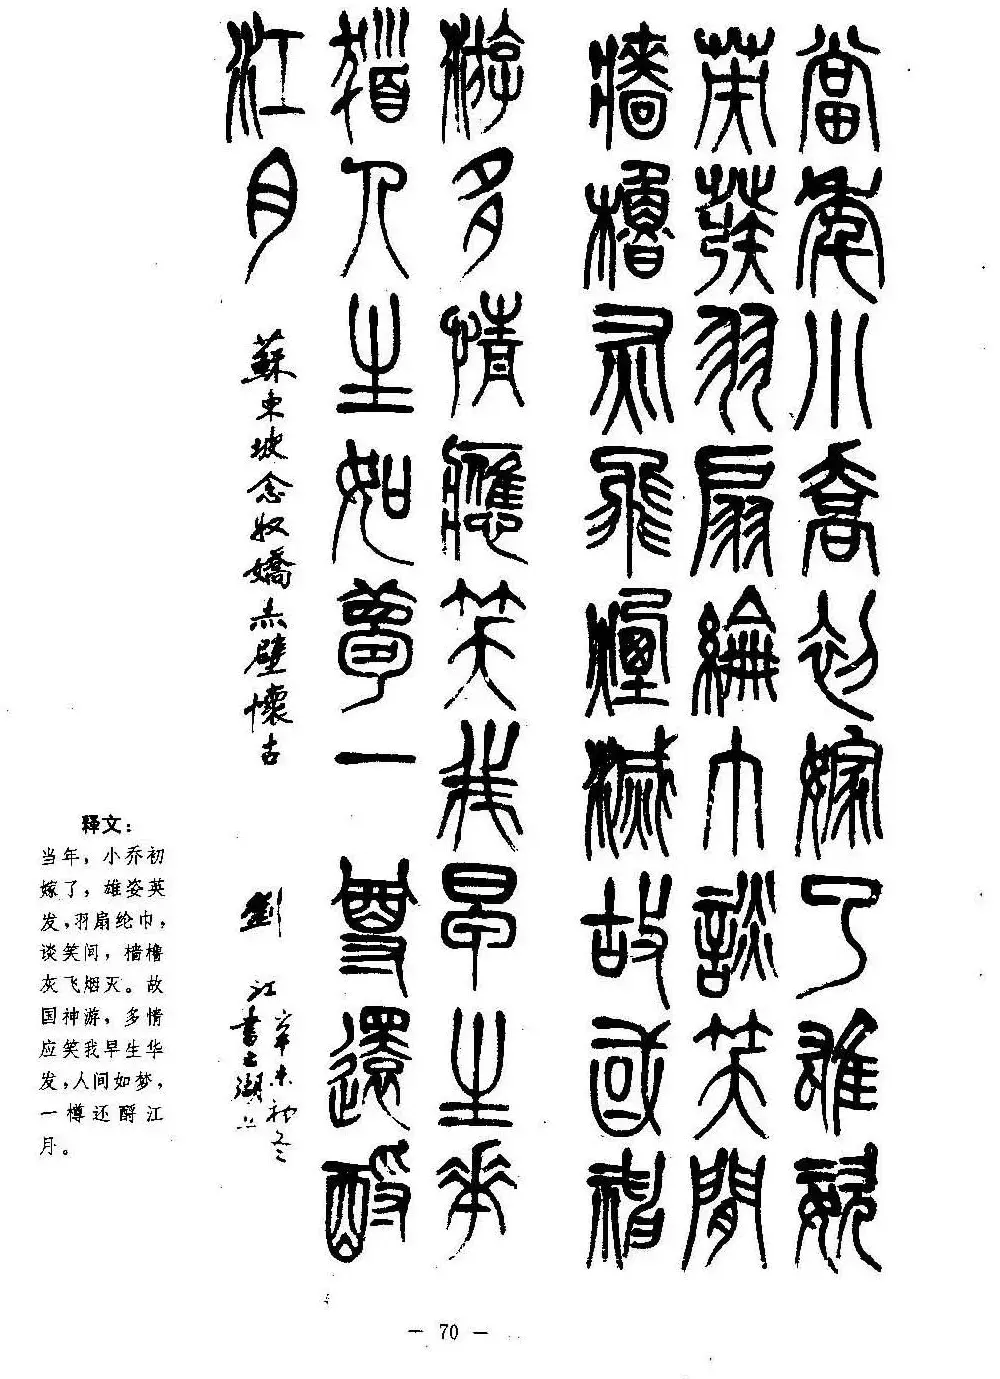 當年小喬初嫁了雄姿
英發羽扇綸巾談笑間
牆櫓灰飛煙滅故國神
游多情應笑我早生華
髮人生如夢一尊還酹
江月
蘇東坡念奴嬌赤壁懷古
劉江
辛未初冬
書上湖上
释文：
当年，小乔初
嫁了，雄姿英
发，羽扇纶巾，
谈笑间，樯橹
灰飞烟灭。故
国神游，多情
应笑我早生华
发，人间如梦，
一樽还酹江
月。
— 70 —